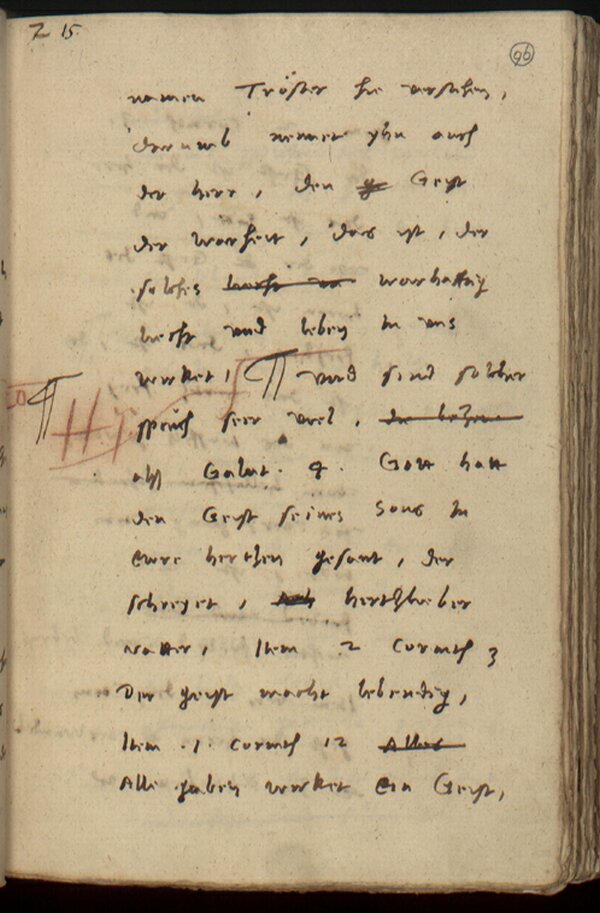 Z 15.
96
namen Tröster hie verstehen,
darumb nennet yhn auch
der herr, den g Geist
der warheit, das ist, der
solches warhafftig
liecht und leben in uns
wirket, ¶ und sind solcher
¶ spruch seer viel,
als Galat. 4. Gott hatt
den Geist seines Sons in
ewre hertzen gesant, der
schreyet, hertzlieber
vatter, Item 2 Corinth 3
Der geist macht lebendig,
Item .1. Corinth 12 Alles
Alle gaben wirket ein Geist,